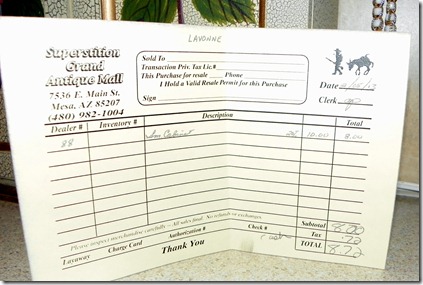 LAVONNE
Superstition
Grand
Antique Mall
7536 E. Main St.
Mesa, AZ 85207
(480) 982-1004
Sold To
Transaction Priv. Tax Lic.#
This Purchase for resale Phone
I Hold a Valid Resale Permit for this Purchase
Sign
Date
Clerk
Dealer # Inventory # Description Total
88 Sm Cabinet 10.00 8.00
Please inspect merchandise carefully -- All sales final. No refunds or exchanges.
Layaway Charge Card Authorization # Check #
Thank You
Subtotal 8.00
Tax .72
TOTAL 8.72